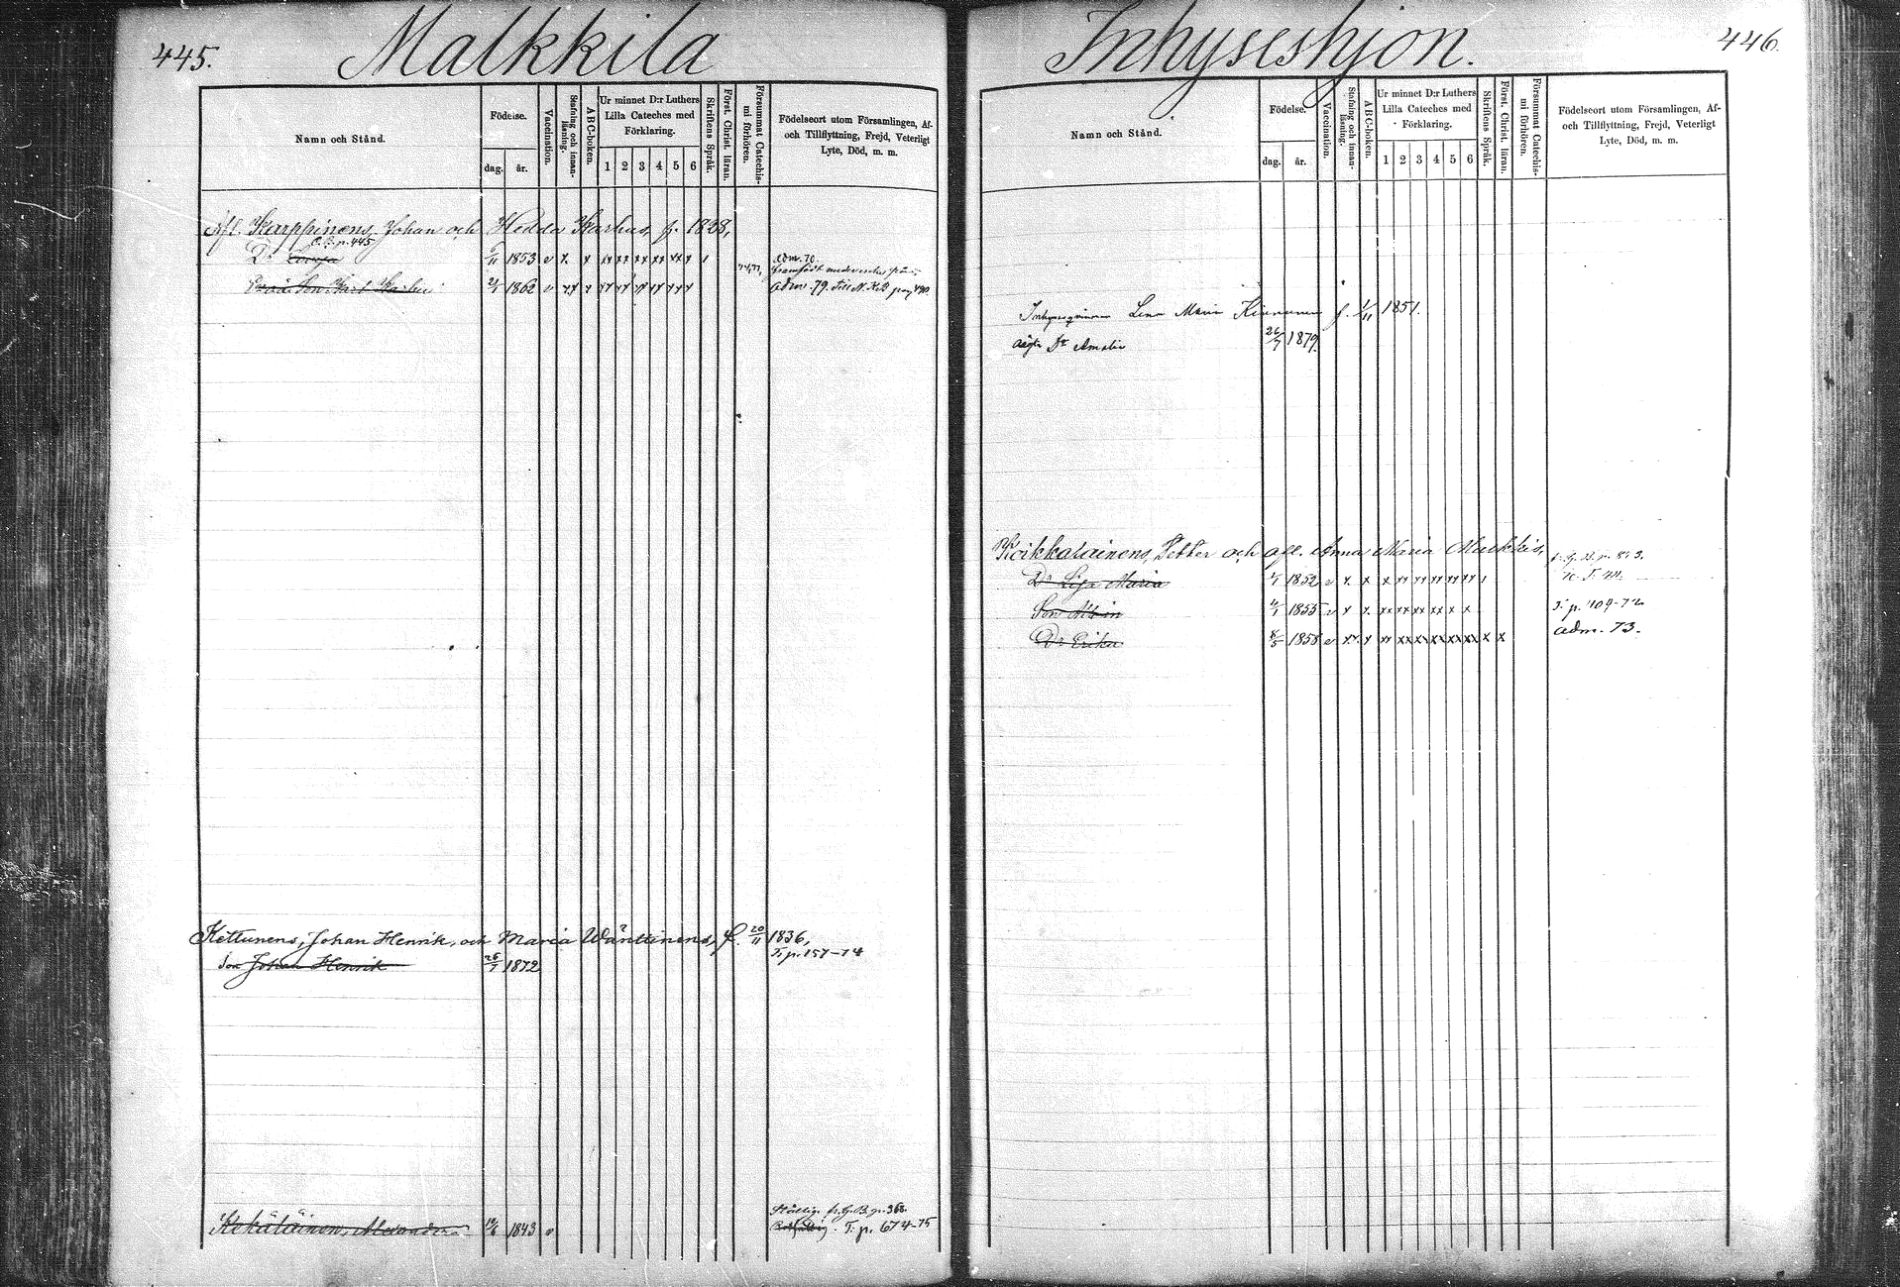 445.
Malkkila
Namn och Stånd.
Födelse.
dag.
år.
Vaccination.
Stafning och innan-läsning.
A B C-boken.
Ur minnet D:r Luthers
Lilla Cateches med
Förklaring.
1 2 3 4 5 6
Skriftens Språk.
Först. Christ. läran.
Försummat Catechis-
mi förhören.
Födelseort utom Församlingen, Af-
och Tillflyttning, Frejd, Veterligt
Lyte, Död, m. m.
Afl. Karppinens, Johan och Hedda Karhus, f. 1828,
p. 445
Dr 1853 v x x xx xx xx xx xx x adm. 70.
1862 v xx x adm. 79. till N. K.B. pag
Kettunens, Johan Henrik, och Maria Wänttinens, f. 20/11 1836,
Son Johan Henrik 26/7 1872 T. p. 157-74
fr. G. B. p. 368.
Kekäläinen, Alexander 1843 v T. p. 674-75
Inhyseshjon.
446.
Namn och Stånd.
Födelse.
dag.
år.
Vaccination.
Stafning och innan-läsning.
A B C-boken.
Ur minnet D:r Luthers
Lilla Cateches med
Förklaring.
1 2 3 4 5 6
Skriftens Språk.
Först. Christ. läran.
Försummat Catechis-
mi förhören.
Födelseort utom Församlingen, Af-
och Tillflyttning, Frejd, Veterligt
Lyte, Död, m. m.
Lena Maria Kinnunen f. 1/11 1851.
Dr Amalia 26/7 1879.
Koikkalainens, Petter och afl. Anna Maria Malkkis,
Dr Lisa Maria 1852 v x x x xx xx xx xx xx
Son Albin 1855 v x x xx xx xx xx x x T. p. 409-72
Dr Erika 8/5 1858 v xx x xx xx xx xx xx xx x x adm. 73.